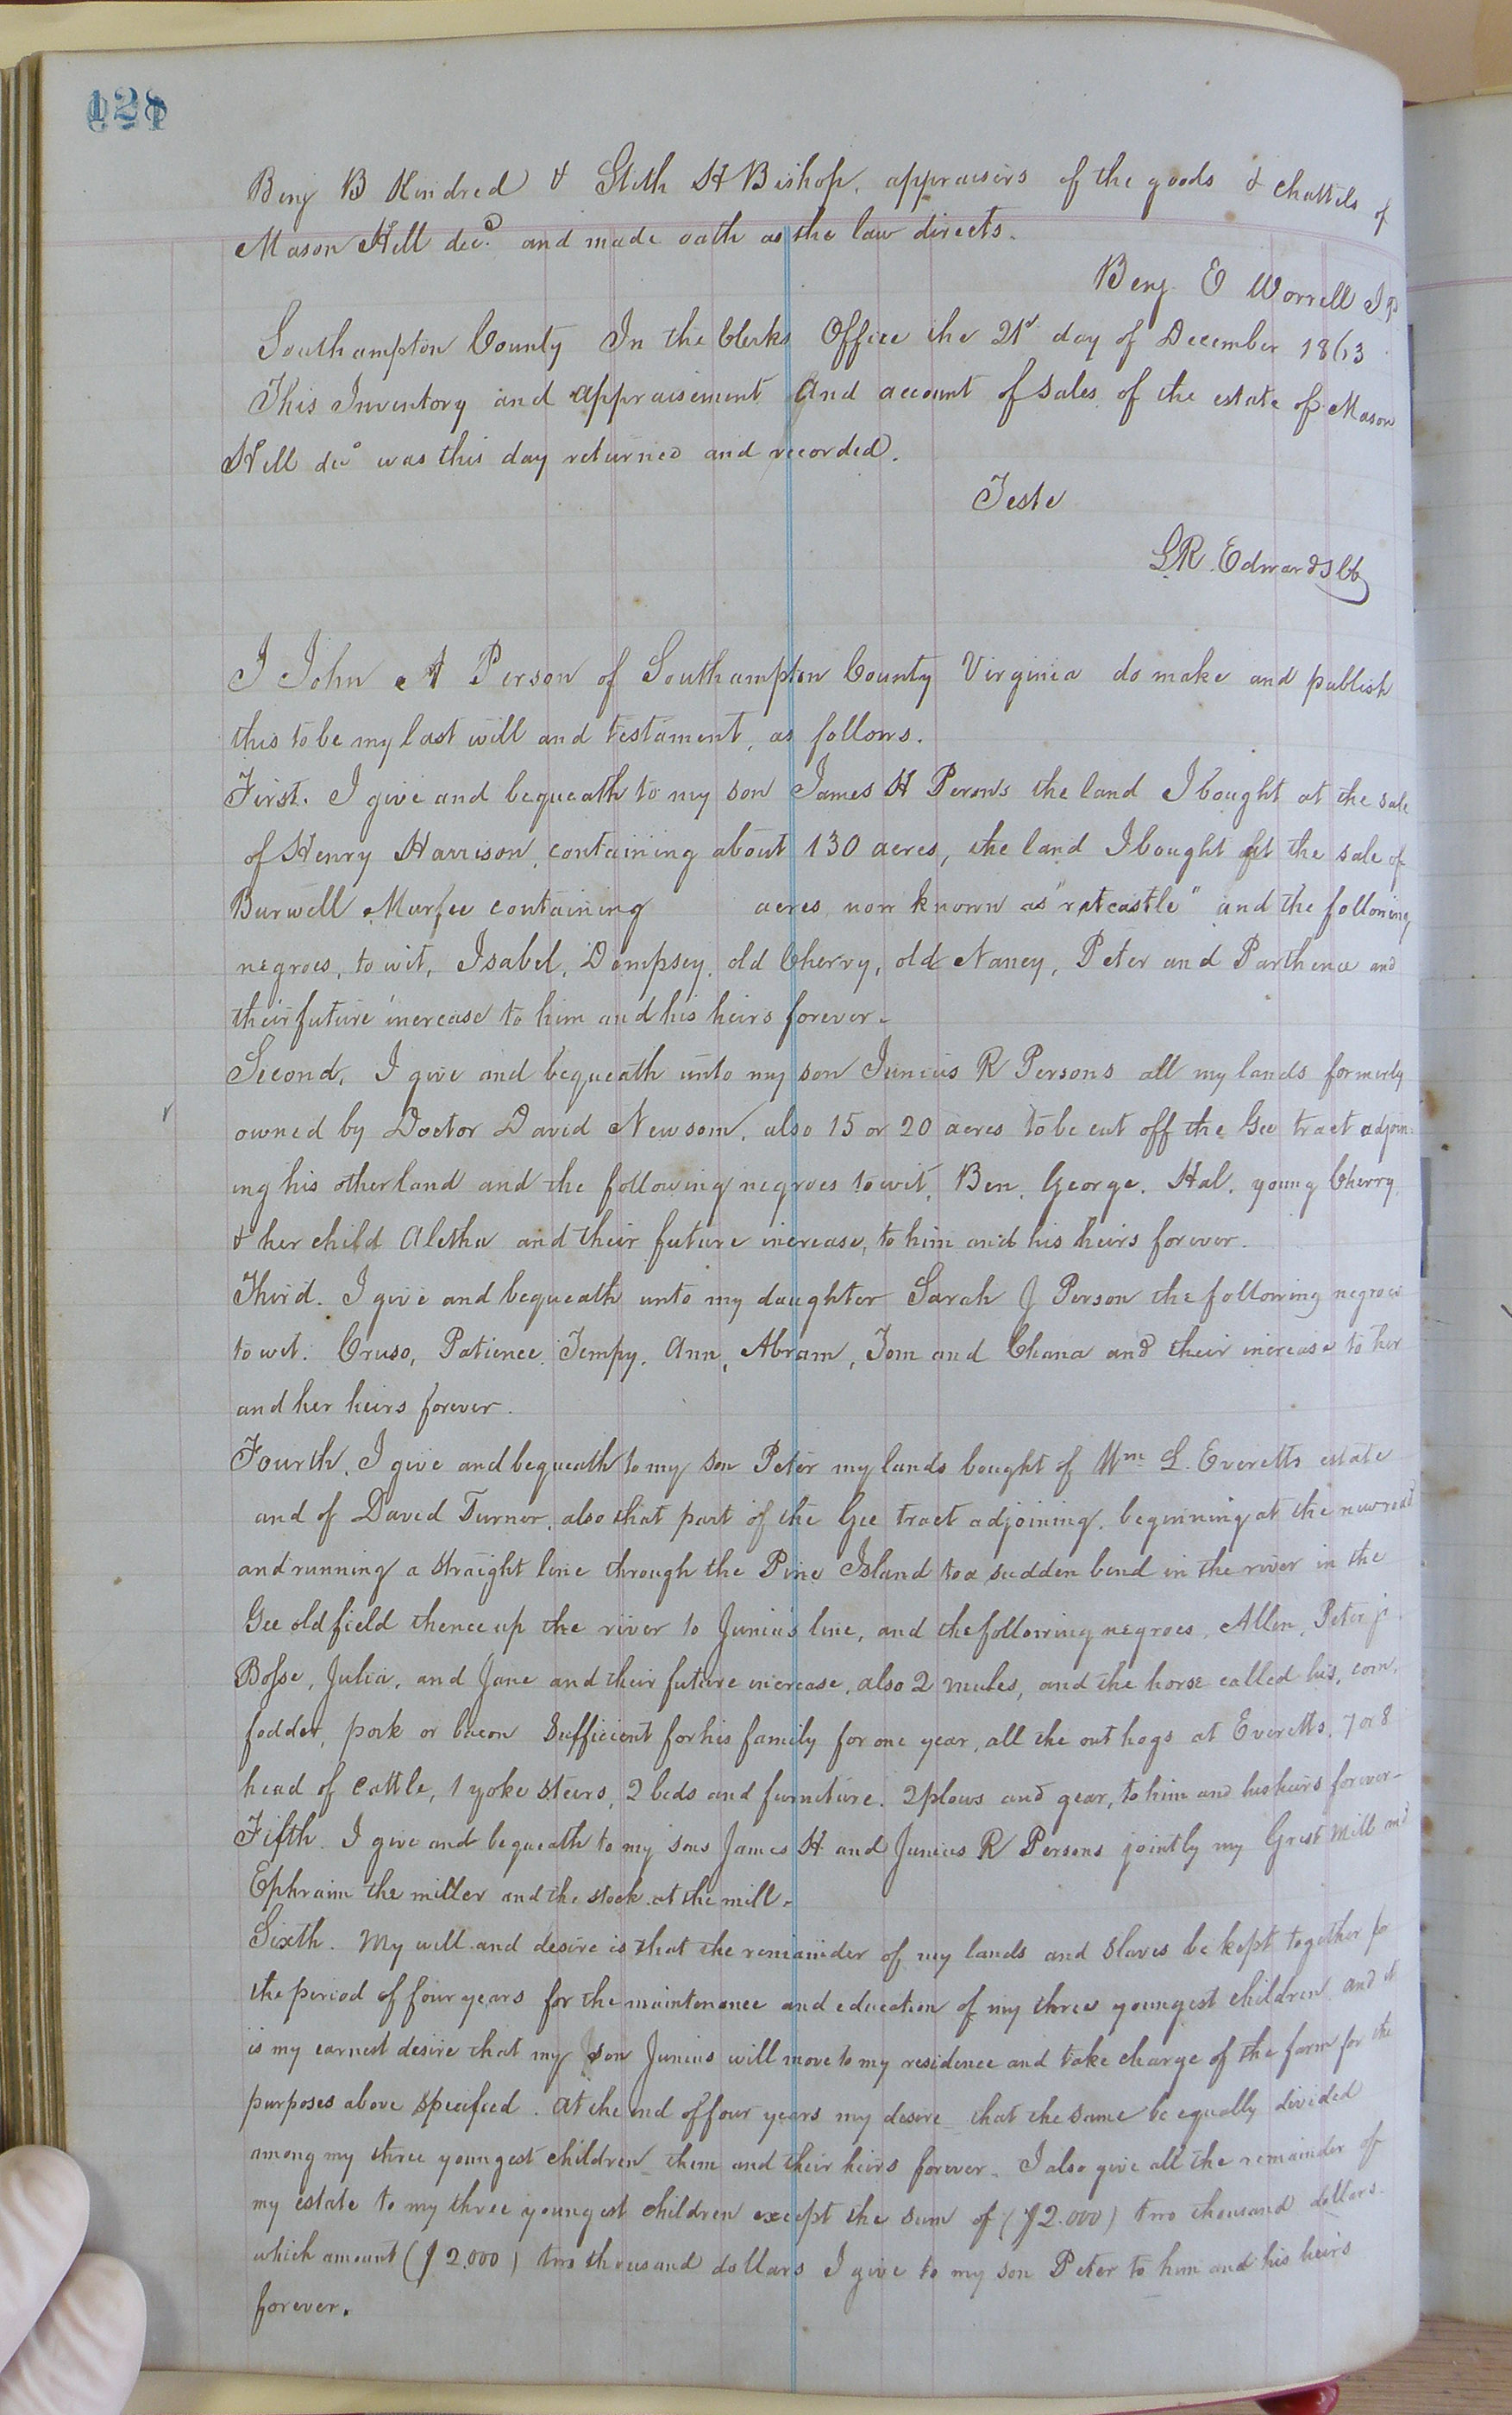 128
Benj B Kindred & Stith H Bishop, appraisers of the goods & chattels of
Mason Hill decd and made oath as the law directs.
Benj E Worrell JP
Southampton County In the Clerks Office the 21st day of December 1863
This Inventory and appraisement And account of sales of the estate of Mason
Hill decd was this day returned and recorded.
Teste
LR Edwards CC
I John A Person of Southampton County Virginia do make and publish
this to be my last will and testament, as follows.
First. I give and bequeath to my son James H Persons the land I bought at the sale
of Henry Harrison, containing about 130 acres, the land I bought at the sale of
Burwell Murfee containing acres, now known as "ratcastle" and the following
negroes, to wit, Isabel, Dempsey, old Cherry, old Nancy, Peter and Parthena and
their future increase to him and his heirs forever.
Second, I give and bequeath unto my son Junius R Persons all my lands formerly
owned by Doctor David Newsom, also 15 or 20 acres to be cut off the Gee tract adjoin-
ing his other land and the following negroes to wit, Ben, George, Hal, young Cherry,
& her child Aletha and their future increase, to him and his heirs forever.
Third. I give and bequeath unto my daughter Sarah J Person the following negroes
to wit. Cruso, Patience, Tempy, Ann, Abram, Tom and Chana and their increase to her
and her heirs forever.
Fourth, I give and bequeath to my son Peter my lands bought of Wm L. Everetts estate
and of David Turner, also that part of the Gee tract adjoining, beginning at the new road
and running a straight line through the Pine Island to a sudden bend in the river in the
Gee old field thence up the river to Junius line, and the following negroes, Allen, Peter jr.
Bosse, Julia, and Jane and their future increase, also 2 mules, and the horse called his, corn,
fodder, pork or bacon sufficient for his family for one year, all the out hogs at Everetts, 7 or 8
head of cattle, 1 yoke steers, 2 beds and furniture. 2 plows and gear, to him and his heirs forever-
Fifth. I give and bequeath to my sons James H and Junius R Persons jointly my Grist Mill and
Ephraim the miller and the stock at the mill.
Sixth. My will and desire is that the remainder of my lands and slaves be kept together for
the period of four years for the maintenance and education of my three youngest children and it
is my earnest desire that my son Junius will move to my residence and take charge of the farm for the
purposes above specified. At the end of four years my desire that the same be equally divided
among my three youngest children them and their heirs forever. I also give all the remainder of
my estate to my three youngest children except the sum of ($2.000) two thousand dollars.
which amount ($2.000) two thousand dollars I give to my son Peter to him and his heirs
forever.